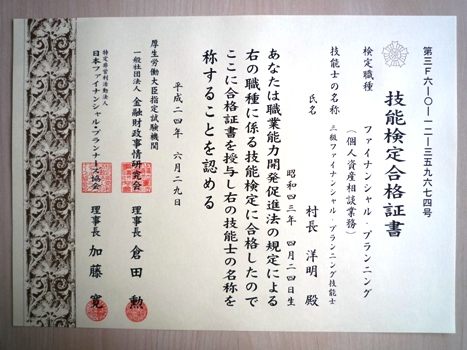 第三F六ー〇ー一二ー三五九六七四号
技能検定合格証書
検定職種　ファイナンシャル・プランニング
（個人資産相談業務）
技能士の名称　三級ファイナンシャル・プランニング技能士
氏名　村長　洋明　殿
昭和四三年　四月二四日生
あなたは職業能力開発促進法の規定による
右の職種に係る技能検定に合格したので
ここに合格証書を授与し右の技能士の名称を
称することを認める
平成二四年　六月二九日
厚生労働大臣指定試験機関
一般社団法人　金融財政事情研究会　理事長　倉田　勲
特定非営利活動法人
日本ファイナンシャル・プランナーズ協会　理事長　加藤　寛